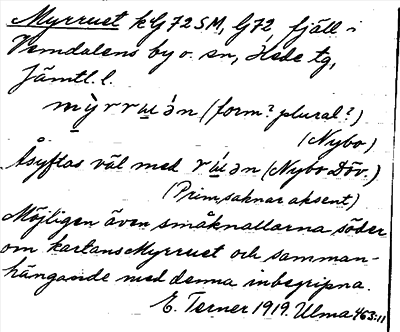 Myrruet kG72SM, G72, fjäll i
Vemdalens by o. sn, Hede tg,
Jämtl. l.
mỳrrɯ́ən (form? plural?)
(Nybo)
Åsyftas väl med rɯ́ən (Nybo Döv.)
(Prim. saknar aksent)
Möjligen även småknallarna söder
om kartans Myrruet och samman-
hängande med denna inbegripna.
E. Terner 1919. Ulma 463:11